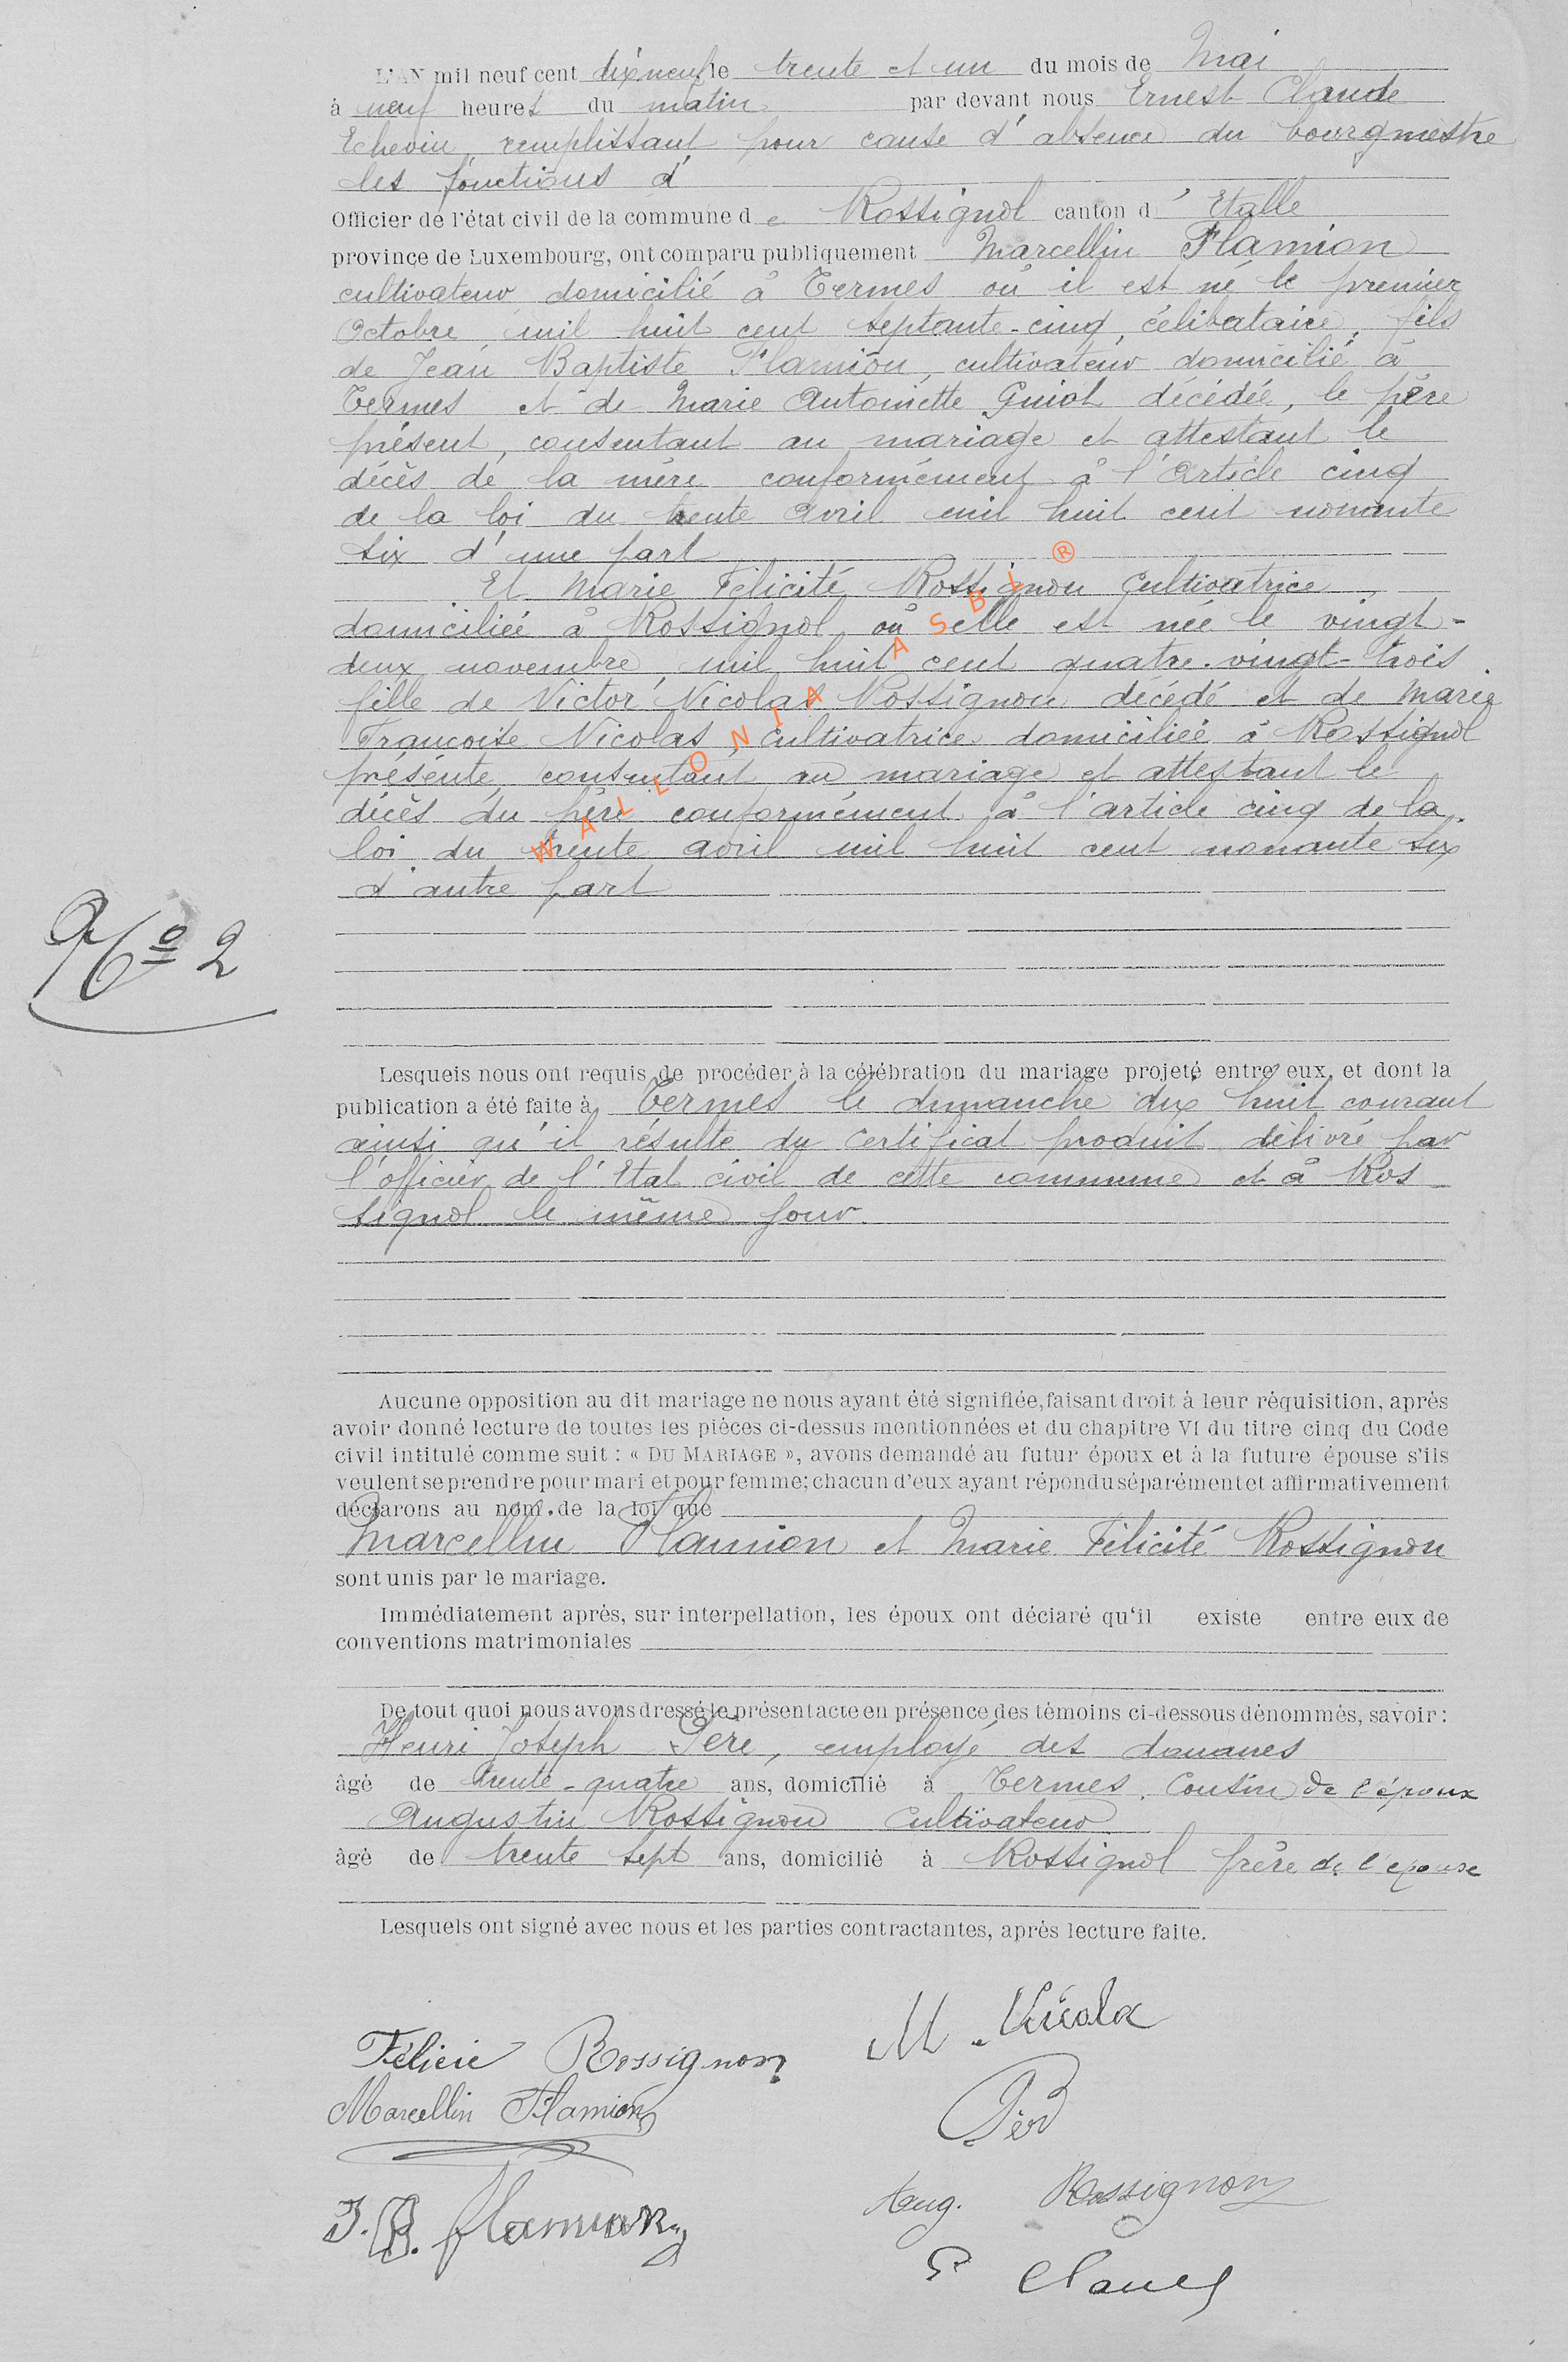 L'AN mil neuf cent dix neuf le trente et un du mois de Mai
à neuf heures du matin par devant nous Ernest Claude
Echevin, remplissant pour cause d'absence du bourgmestre
les fonctions d'
Officier de l'état civil de la commune de Rossignol canton d'Etalle
province de Luxembourg, ont comparu publiquement Marcellin Flamion
cultivateur domicilié à Termes où il est né le premier
Octobre mil huit cent septante-cinq, célibataire, fils
de Jean Baptiste Flamion, cultivateur domicilié à
Termes et de Marie Antoinette Guiot décédée, le père
présent, consentant au mariage et attestant le
décès de la mère conformément à l'article cinq
de la loi du trente avril mil huit cent nonante
six d'une part
Et Marie Félicité Rossignon Cultivatrice
domiciliée à Rossignol où elle est née le vingt-
deux novembre mil huit cent quatre-vingt-trois
fille de Victor Nicolas Rossignon décédé et de Marie
Françoise Nicolas, cultivatrice domiciliée à Rossignol
présente, consentant au mariage et attestant le
décès du père conformément à l'article cinq de la
loi du trente avril mil huit cent nonante six
d'autre part
WALLONIA ASBL ®
No 2
Lesquels nous ont requis de procéder à la célébration du mariage projeté entre eux, et dont la
publication a été faite à Termes le dimanche dix huit courant
ainsi qu'il résulte du Certificat produit délivré par
l'officier de l'Etat civil de cette commune et à Ros
signol le même jour.
Aucune opposition au dit mariage ne nous ayant été signifiée, faisant droit à leur réquisition, après
avoir donné lecture de toutes les pièces ci-dessus mentionnées et du chapitre VI du titre cinq du Code
civil intitulé comme suit : « DU MARIAGE », avons demandé au futur époux et à la future épouse s'ils
veulent se prendre pour mari et pour femme; chacun d'eux ayant répondu séparément et affirmativement
déclarons au nom de la loi que
Marcellin Flamion et Marie Félicité Rossignon
sont unis par le mariage.
Immédiatement après, sur interpellation, les époux ont déclaré qu'il existe entre eux de
conventions matrimoniales
De tout quoi nous avons dressé le présent acte en présence des témoins ci-dessous dénommés, savoir :
Henri Joseph Père, employé des douanes
âgé de trente-quatre ans, domicilié à Termes, Cousin de l'époux
Augustin Rossignon Cultivateur
âgé de trente sept ans, domicilié à Rossignol frère de l'épouse
Lesquels ont signé avec nous et les parties contractantes, après lecture faite.
M. Nicolas
Félicie Rossignon
Marcellin Flamion
Père
J. B. flamion
Aug. Rossignon
E Claude